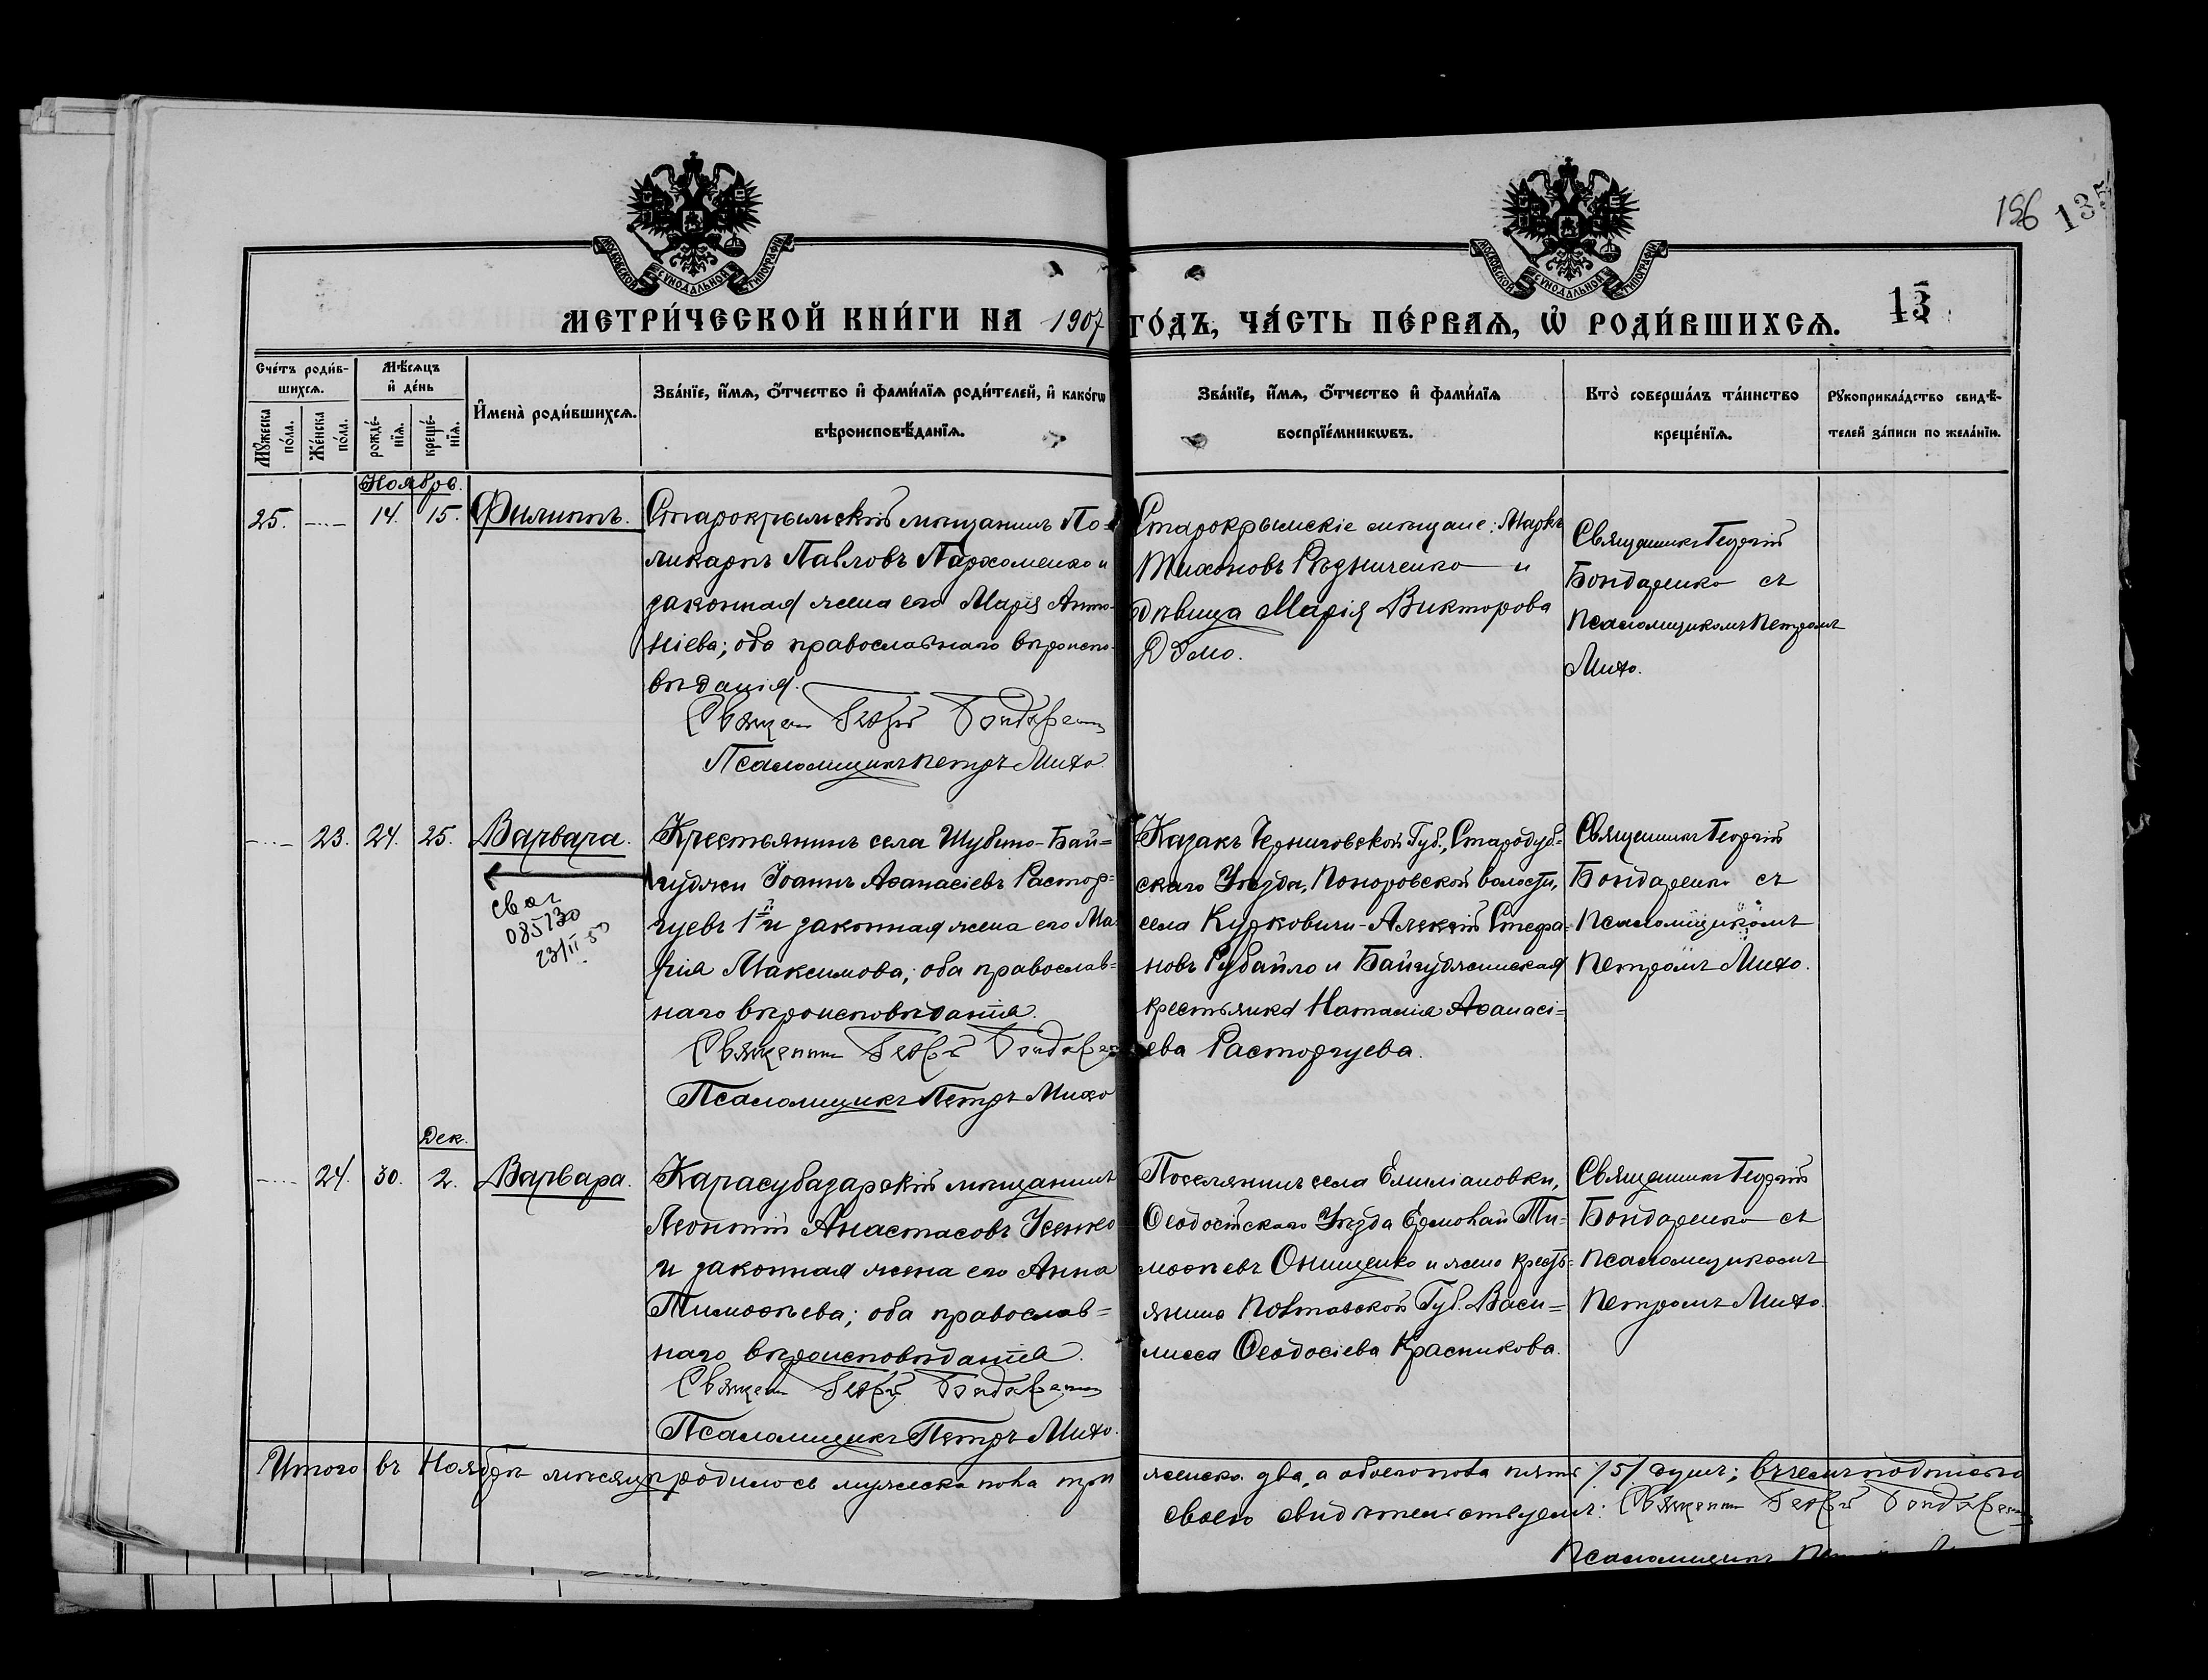 196 135
МОСКОВСКОЙ СѴНОДАЛЬНОЙ ТИПОГРАФІИ
МОСКОВСКОЙ СѴНОДАЛЬНОЙ ТИПОГРАФІИ
МЕТРИ́ЧЕСКОЙ КНИ́ГИ НА 1907 ГО́ДЪ, ЧА́СТЬ ПЕ́РВАѦ, Ѡ҆ РОДИ́ВШИХСѦ. 13
Сче́тъ роди́в-
шихсѧ.
Мѹ́жеска по́ла.
Же́нска по́ла.
Мѣ́сѧцъ
и҆ де́нь
рожде́-нїѧ.
креще́-нїѧ.
И҆мена̀ роди́вшихсѧ.
Зва́нїе, и҆́мѧ, ѻ҆́тчество и҆ фами́лїѧ роди́телей, и҆ како́гѡ
вѣроисповѣ́данїѧ.
Зва́нїе, и҆́мѧ, ѻ҆́тчество и҆ фами́лїѧ
воспрїе́мникѡвъ.
Кто̀ соверша́лъ та́инство
креще́нїѧ.
Рѹкоприкла́дство свидѣ́-
телей за́писи по жела́нїю.
Ноябрь.
25. 14. 15. Филиппъ.
Старокрымскій мѣщанинъ По-
ликарпъ Павловъ Пархоменко и
законная жена его Марія Анто-
ніева; оба православнаго вѣроиспо-
вѣданія.
Священ Георгій Бондаренко
Псаломщикъ Петръ Михо
Старокрымскіе мѣщане: Маркъ
Тихоновъ Рѣдниченко и
дѣвица Марія Викторова
Священникъ Георгій
Бондаренко съ
псаломщикомъ Петромъ
Михо.
23. 24. 25. Варвара.
085130
Крестьянинъ села Шубино-Бай=
гуджи Іоаннъ Аѳанасіевъ Растор=
гуевъ 1й и законная жена его Ма-
рія Максимова; оба православ=
наго вѣроисповѣданія.
Священник Георгій Бондарен
Псаломщикъ Петръ Михо
Казакъ Черниговской Губ., Стародуб=
скаго Уѣзда, Поноровской волости,
села Курковичи-Алексѣй Стефа=
новъ Рубайло и Байгуджинская
крестьянка Наталія Аѳанасі=
ева Расторгуева.
Священникъ Георгій
Бондаренко съ
псаломщикомъ
Петромъ Михо.
Дек.
24. 30. 2. Варвара.
Карасубазарскій мѣщанинъ
Леонтій Анастасовъ Усенко
и законная жена его Анна
Тимоѳеева; оба православ=
наго вѣроисповѣданія.
Священ Георгій Бондаренко
Псаломщикъ Петръ Михо.
Поселянинъ села Емиліановки,
Ѳеодосійскаго Уѣзда Ермолай Ти=
моѳеевъ Онищенко и жена кресть=
янина Полтавской Губ. Васи=
лисса Ѳеодосіева Красникова.
Священникъ Георгій
Бондаренко съ
псаломщикомъ
Петромъ Михо.
Итого въ Ноябрѣ мѣсяцѣ родилось мужеска пола три женска два, а обоего пола пять /5/ душъ; въ чемъ подписью
своею свидѣтельствуемъ: Священник Георгій Бондаренко
Псаломщикъ